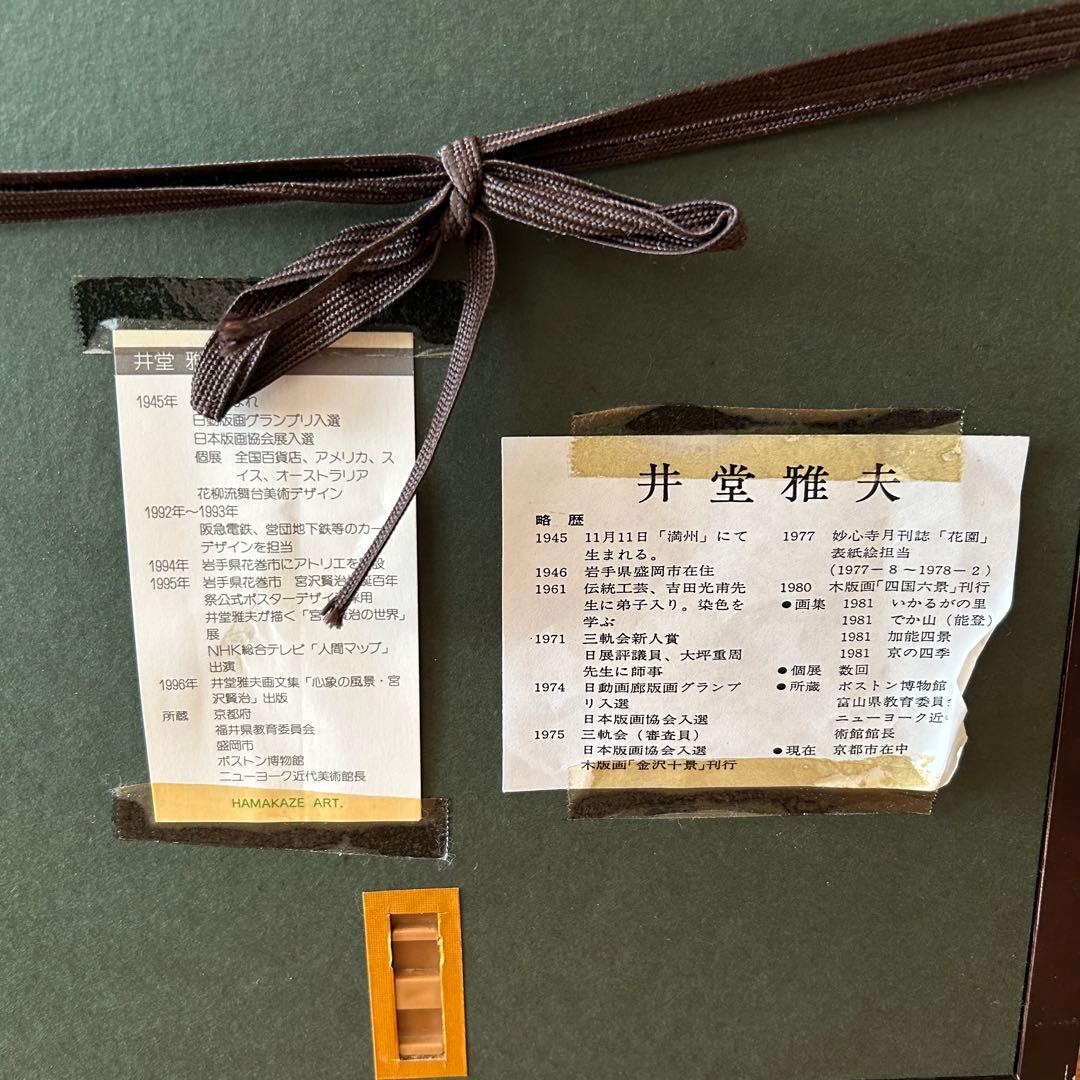 井堂 雅
1945年
日動版画グランプリ入選
日本版画協会展入選
個展 全国百貨店、アメリカ、ス
イス、オーストラリア
花柳流舞台美術デザイン
1992年〜1993年
阪急電鉄、営団地下鉄等のカー
デザインを担当
1994年 岩手県花巻市にアトリエを 設
1995年 岩手県花巻市 宮沢賢治 誕百年
祭公式ポスターデザイ 採用
井堂雅夫が描く「宮 賢治の世界」
展
NHK総合テレビ「人間マップ」
出演
1996年 井堂雅夫画文集「心象の風景・宮
沢賢治」出版
所蔵 京都府
福井県教育委員会
盛岡市
ボストン博物館
ニューヨーク近代美術館長
HAMAKAZE ART.
井堂雅夫
略 歴
1945 11月11日「満州」にて
生まれる。
1946 岩手県盛岡市在住
1961 伝統工芸、吉田光甫先
生に弟子入り。染色を
学ぶ
1971 三軌会新人賞
日展評議員、大坪重周
先生に師事
1974 日動画廊版画グランプ
リ入選
日本版画協会入選
1975 三軌会(審査員)
日本版画協会入選
木版画「金沢十景」刊行
1977 妙心寺月刊誌「花園」
表紙絵担当
(1977-8〜1978-2)
1980 木版画「四国六景」刊行
●画集 1981 いかるがの里
1981 でか山(能登)
1981 加能四景
1981 京の四季
●個展 数回
●所蔵 ボストン博物館
富山県教育委員
ニューヨーク近
術館館長
●現在 京都市在中